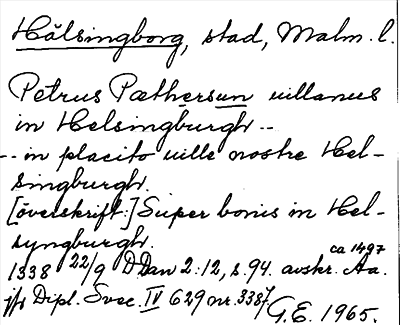 Hälsingborg, stad, Malm. l.
Petrus Pæthersun uillanus
in Helsingburgh --
-- in placito uille nostre Hel-
singburgh.
[överskrift:] Super bonis in Hel-
syngburgh.
ca 1497
1338 22/9 DDan 2:12, s. 94. avskr. Aa.
jfr Dipl. Svec. IV 629 nr. 3387
G.E. 1965.